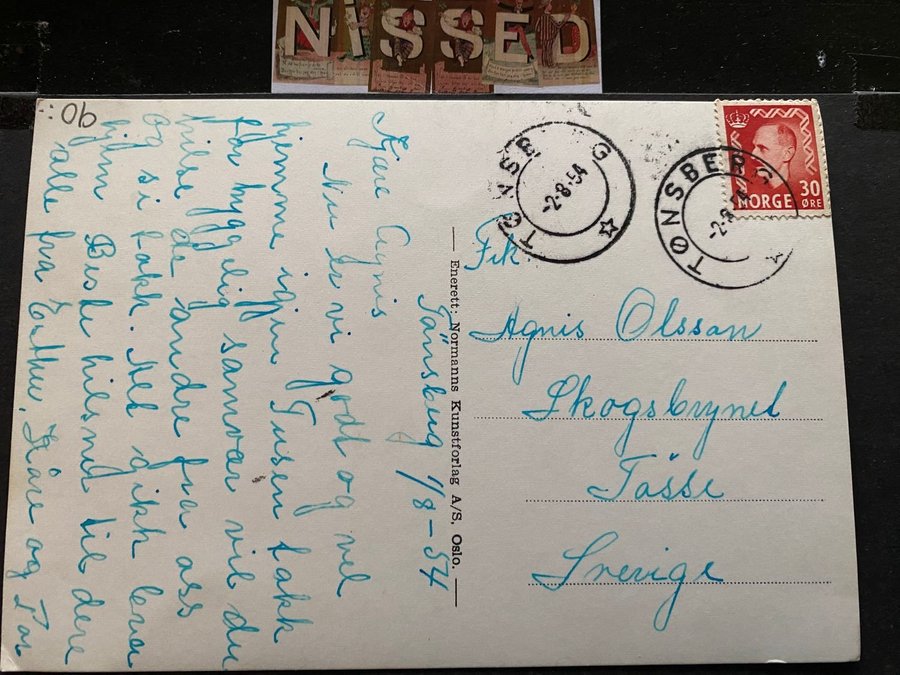 NISSED
Tönsberg 1/8-54
Kjære Agnis
Nu er vi godt og vel
hjemme igjen Tusen takk
for hyggelig samvær vil du
hilse de andre fra oss
og si takk. Alt gikk bra
hjem Beste hilsner til dere
alle fra Kåre og Tor
— Enerett: Normanns Kunstforlag A/S, Oslo. —
TØNSBERG
2-8-54
TØNSBERG
MORGE 30
ØRE
Frk.
Agnis Olsson
Skogsbrynet
Tösse
Sverige